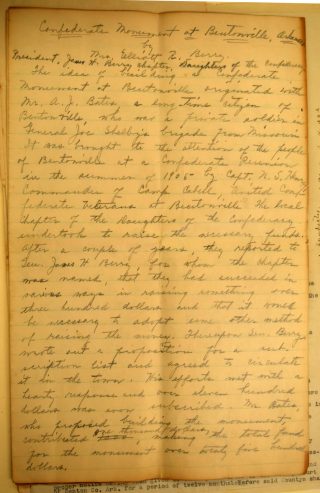 Confederate Monument at Bentonville, Arkansas
by
Mrs. Elliott R. Berry
President, James H. Berry chapter, Daughters of the Confederacy
The idea of building a Confederate
Monument at Bentonville originated with
Mr. A. J. Bates, a long time citizen of
Bentonville, who was a private soldier in
General Joe Shelby's brigade from Missouri
It was brought to the attention of the people
of Bentonville at a Confederate Reunion
in the summer of 1905 by Capt. N. S. Henry
Commander of Camp Cabell, United Con-
federate Veterans at Bentonville. The local
chapter of the Daughters of the Confederacy
undertook to raise the necessary funds.
After a couple of years, they reported to
Sen. James H. Berry, for whom the chapter
was named, that they had succeeded in
various ways in raising something over
three hundred dollars and that it would
be necessary to adopt some other method
of raising the money. Thereupon Sen. Berry
wrote out a proposition for a sub-
scription list and agreed to circulate
it in the town. His efforts met with a
hearty response and over eleven hundred
dollars was soon subscribed. Mr. Bates,
who proposed building the monument,
contributed one thousand dollars, making the total fund
for the monument over twenty five hundred
dollars.
of Benton Co. Ark. for a period of twelve months before said County